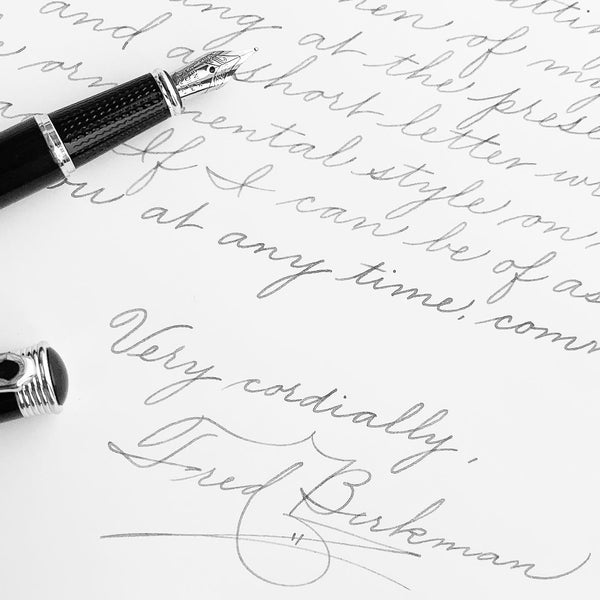 and
men of my
at the prese
and a short letter
ornamental style on
If I can be of as
at any time, comm
Very cordially,
Fred Berkman